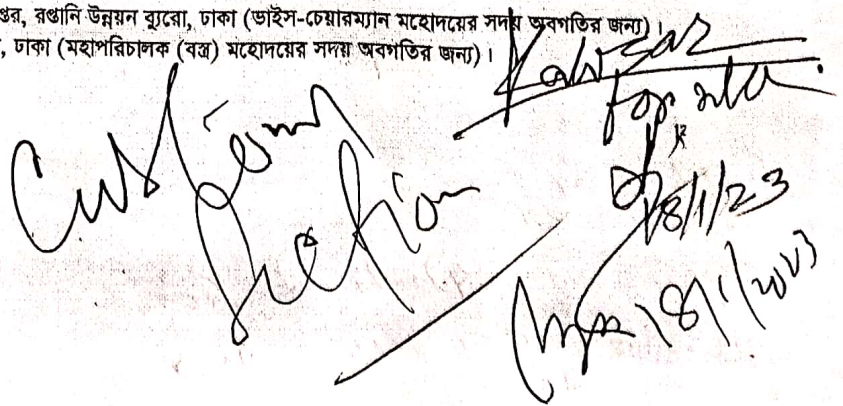 প্তর, রপ্তানি উন্নয়ন ব্যুরো, ঢাকা (ভাইস-চেয়ারম্যান মহোদয়ের সদয় অবগতির জন্য)।
, ঢাকা (মহাপরিচালক (বস্ত্র) মহোদয়ের সদয় অবগতির জন্য)।
for
Custom
Section
18/1/23
18/1/2023